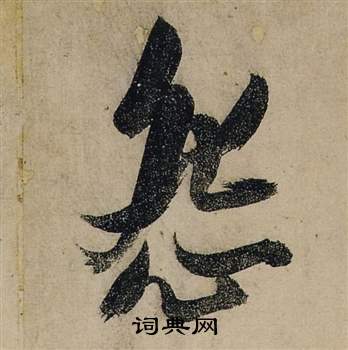 怨
词典网